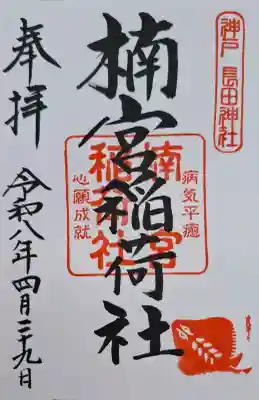 神戸 長田神社
楠宮稲荷社
奉拝
令和八年四月二十九日
楠宮
稲荷社
病気平癒
心願成就